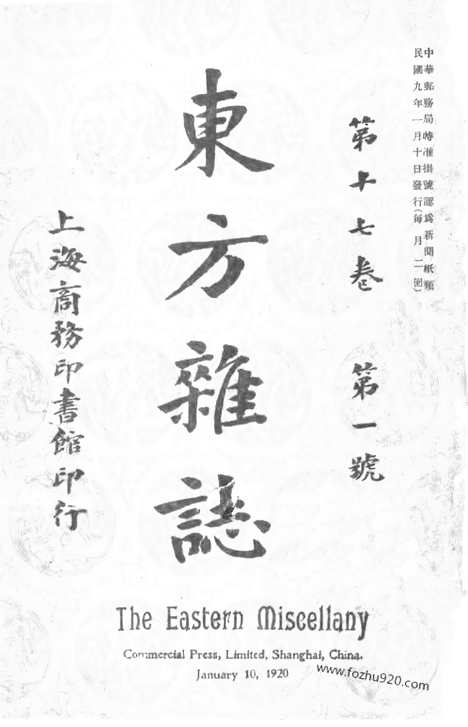 中華郵務局特准掛號認爲新聞紙類
民國九年一月十日發行(每月二回)
第十七卷 第一號
東方雜誌
上海商務印書館印行
The Eastern Miscellany
Commercial Press, Limited, Shanghai, China.
January 10, 1920
www.fozhu920.com